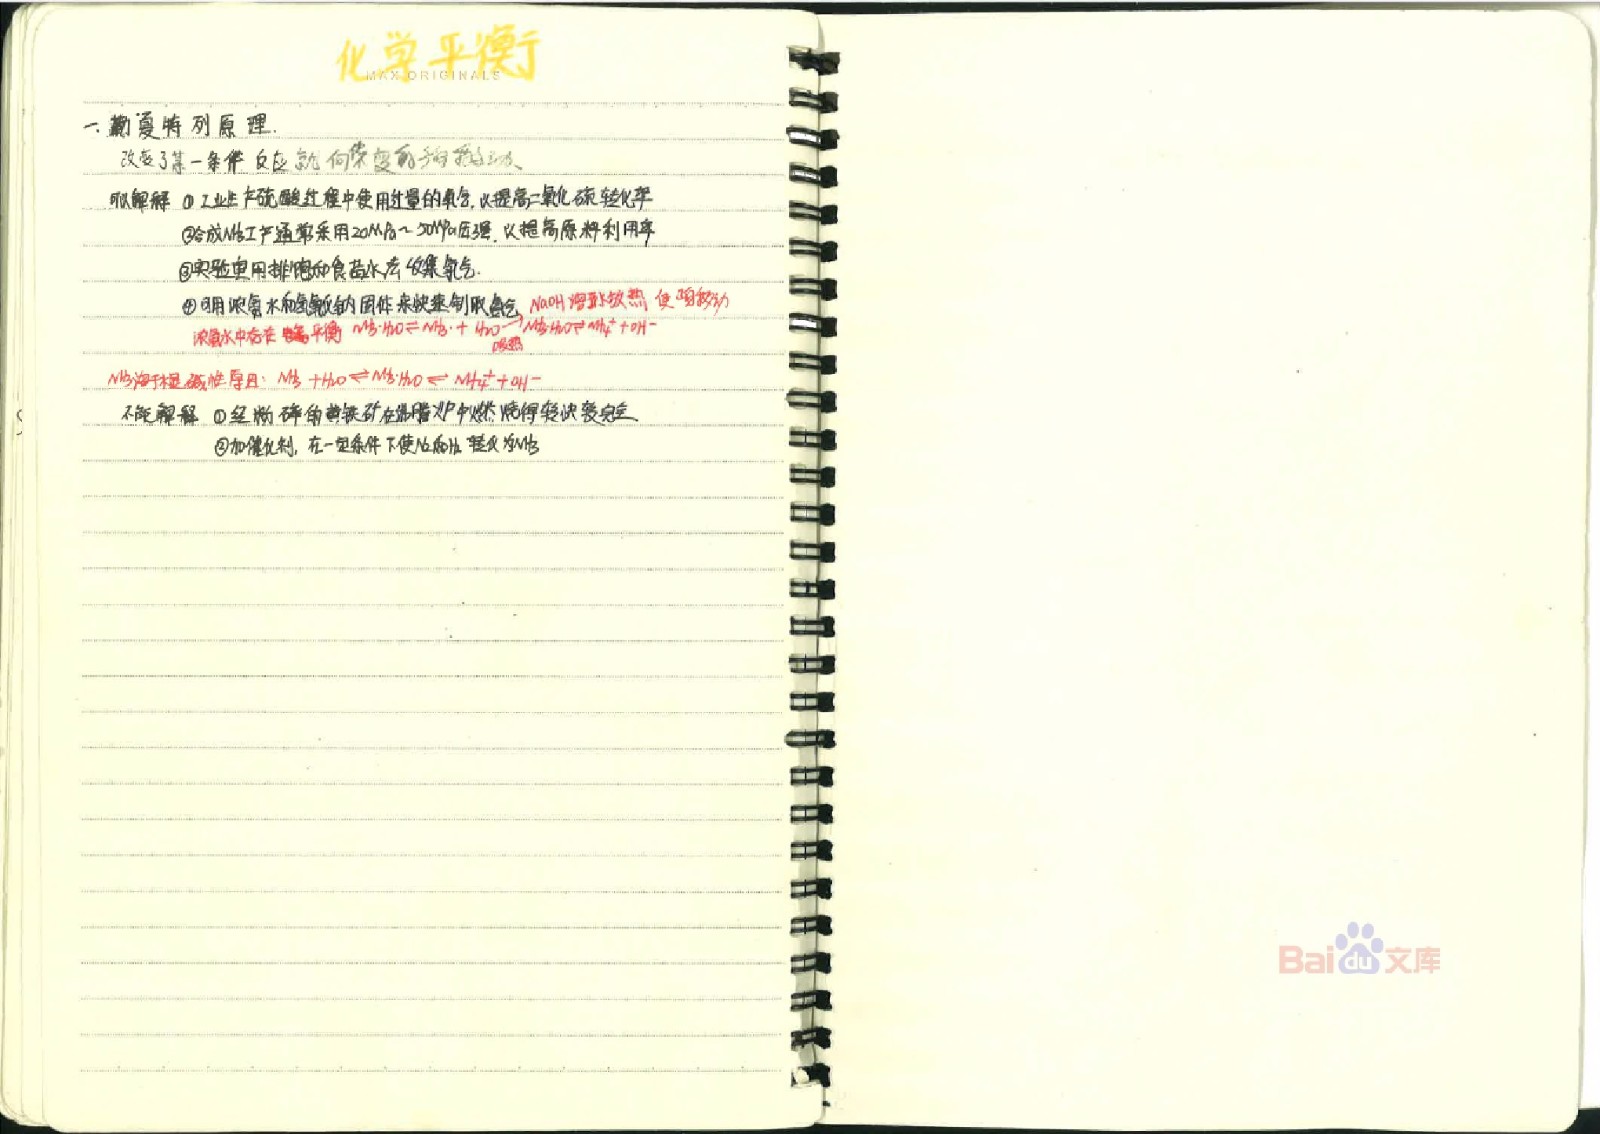 化学平衡
MAX ORIGINALS
一. 勒夏特列原理.
改变了某一条件 反应就向
可以解释 ①工业生产硫酸过程中使用过量的氧气,以提高二氧化硫转化率
②合成NH3工产通常采用20MPa~50MPa压强,以提高原料利用率
③实验室用排饱和食盐水法收集氯气.
④可用浓氨水和氢氧化钠固体来快速制取氨气 NaOH溶于水放热 使 移动
浓氨水中存在 平衡 NH3·H2O⇌NH3·+H2O NH3·H2O⇌NH4⁺+OH⁻
吸热
NH3溶于 碱性原因: NH3+H2O⇌NH3·H2O⇌NH4⁺+OH⁻
不能解释 ①经粉碎的黄铁矿在沸腾炉中燃烧得较快较完全
②加催化剂,在一定条件下使N2和H2转化为NH3
Baidu文库